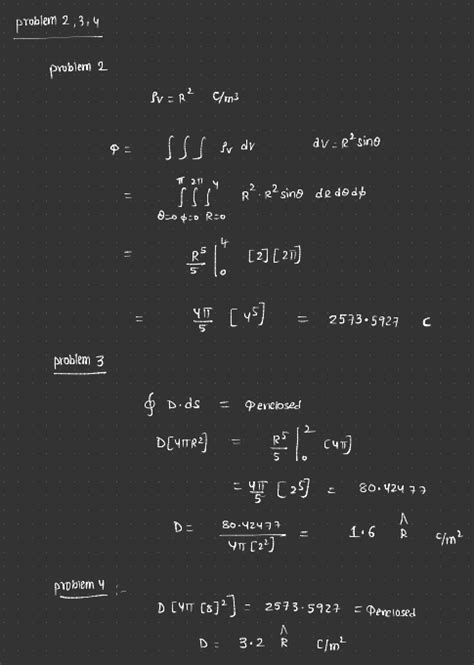 problem 2,3,4
problem 2
ρv = R² C/m3
Φ = ∫∫∫ ρv dv    dv = R² sinθ
= ∫∫∫ R²·R² sinθ dR dθ dϕ
π 2π 4
θ=0 ϕ=0 R=0
= R⁵/5 |₀⁴ [2][2π]
= 4π/5 [4⁵] = 2573.5927 C
problem 3
∮ D.ds = Φenclosed
D[4πR²] = R⁵/5 |₀² [4π]
= 4π/5 [2⁵] = 80.42477
D = 80.42477/4π[2²] = 1.6 R̂ C/m²
problem 4 :-
D [4π [8]²] = 2573.5927 = Φenclosed
D = 3.2 R̂ C/m²